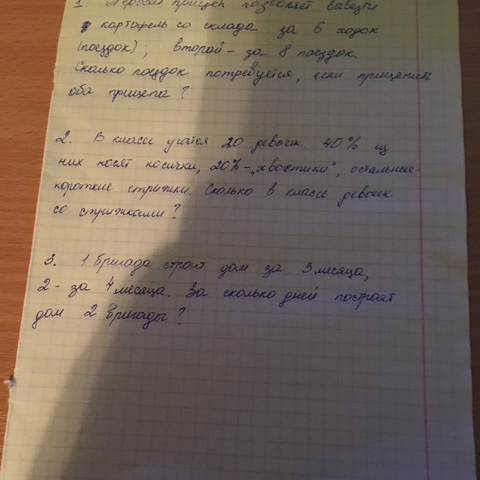 1. Первый прицеп позволяет вывезти
картофель со склада за 6 ходок
(поездок); второй - за 8 поездок.
Сколько поездок потребуется, если прицепить
оба прицепа?
2. В классе учатся 20 девочек. 40% из
них носят косички, 20% - "хвостики", остальные -
короткие стрижки. Сколько в классе девочек
со стрижками?
3. 1 бригада строит дом за 3 месяца,
2 - за 4 месяца. За сколько дней построят
дом 2 бригады?